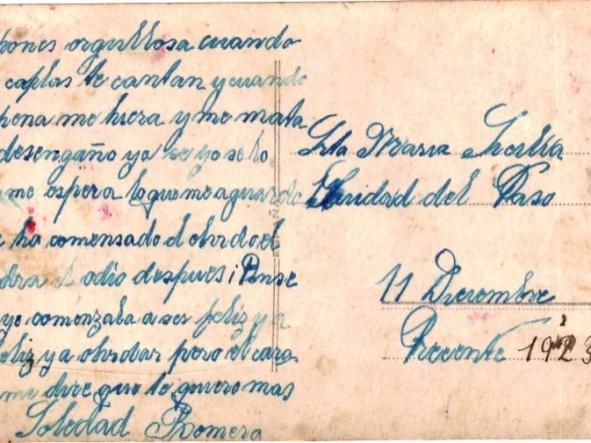 pones orgullosa cuando
caplas te cantan y cuando
pena me hiera y me mata
desengaño ya se yo se lo
me espera lo que me aguarda
ha comensado el olvido el
el odio despues i Pense
yo comenzaba a ser feliz y a
feliz y a olvidar pero el cara
me dice que te quiero mas
Soledad Romera
Sta Maria
del Paso
11 Diciembre
Presente 1923